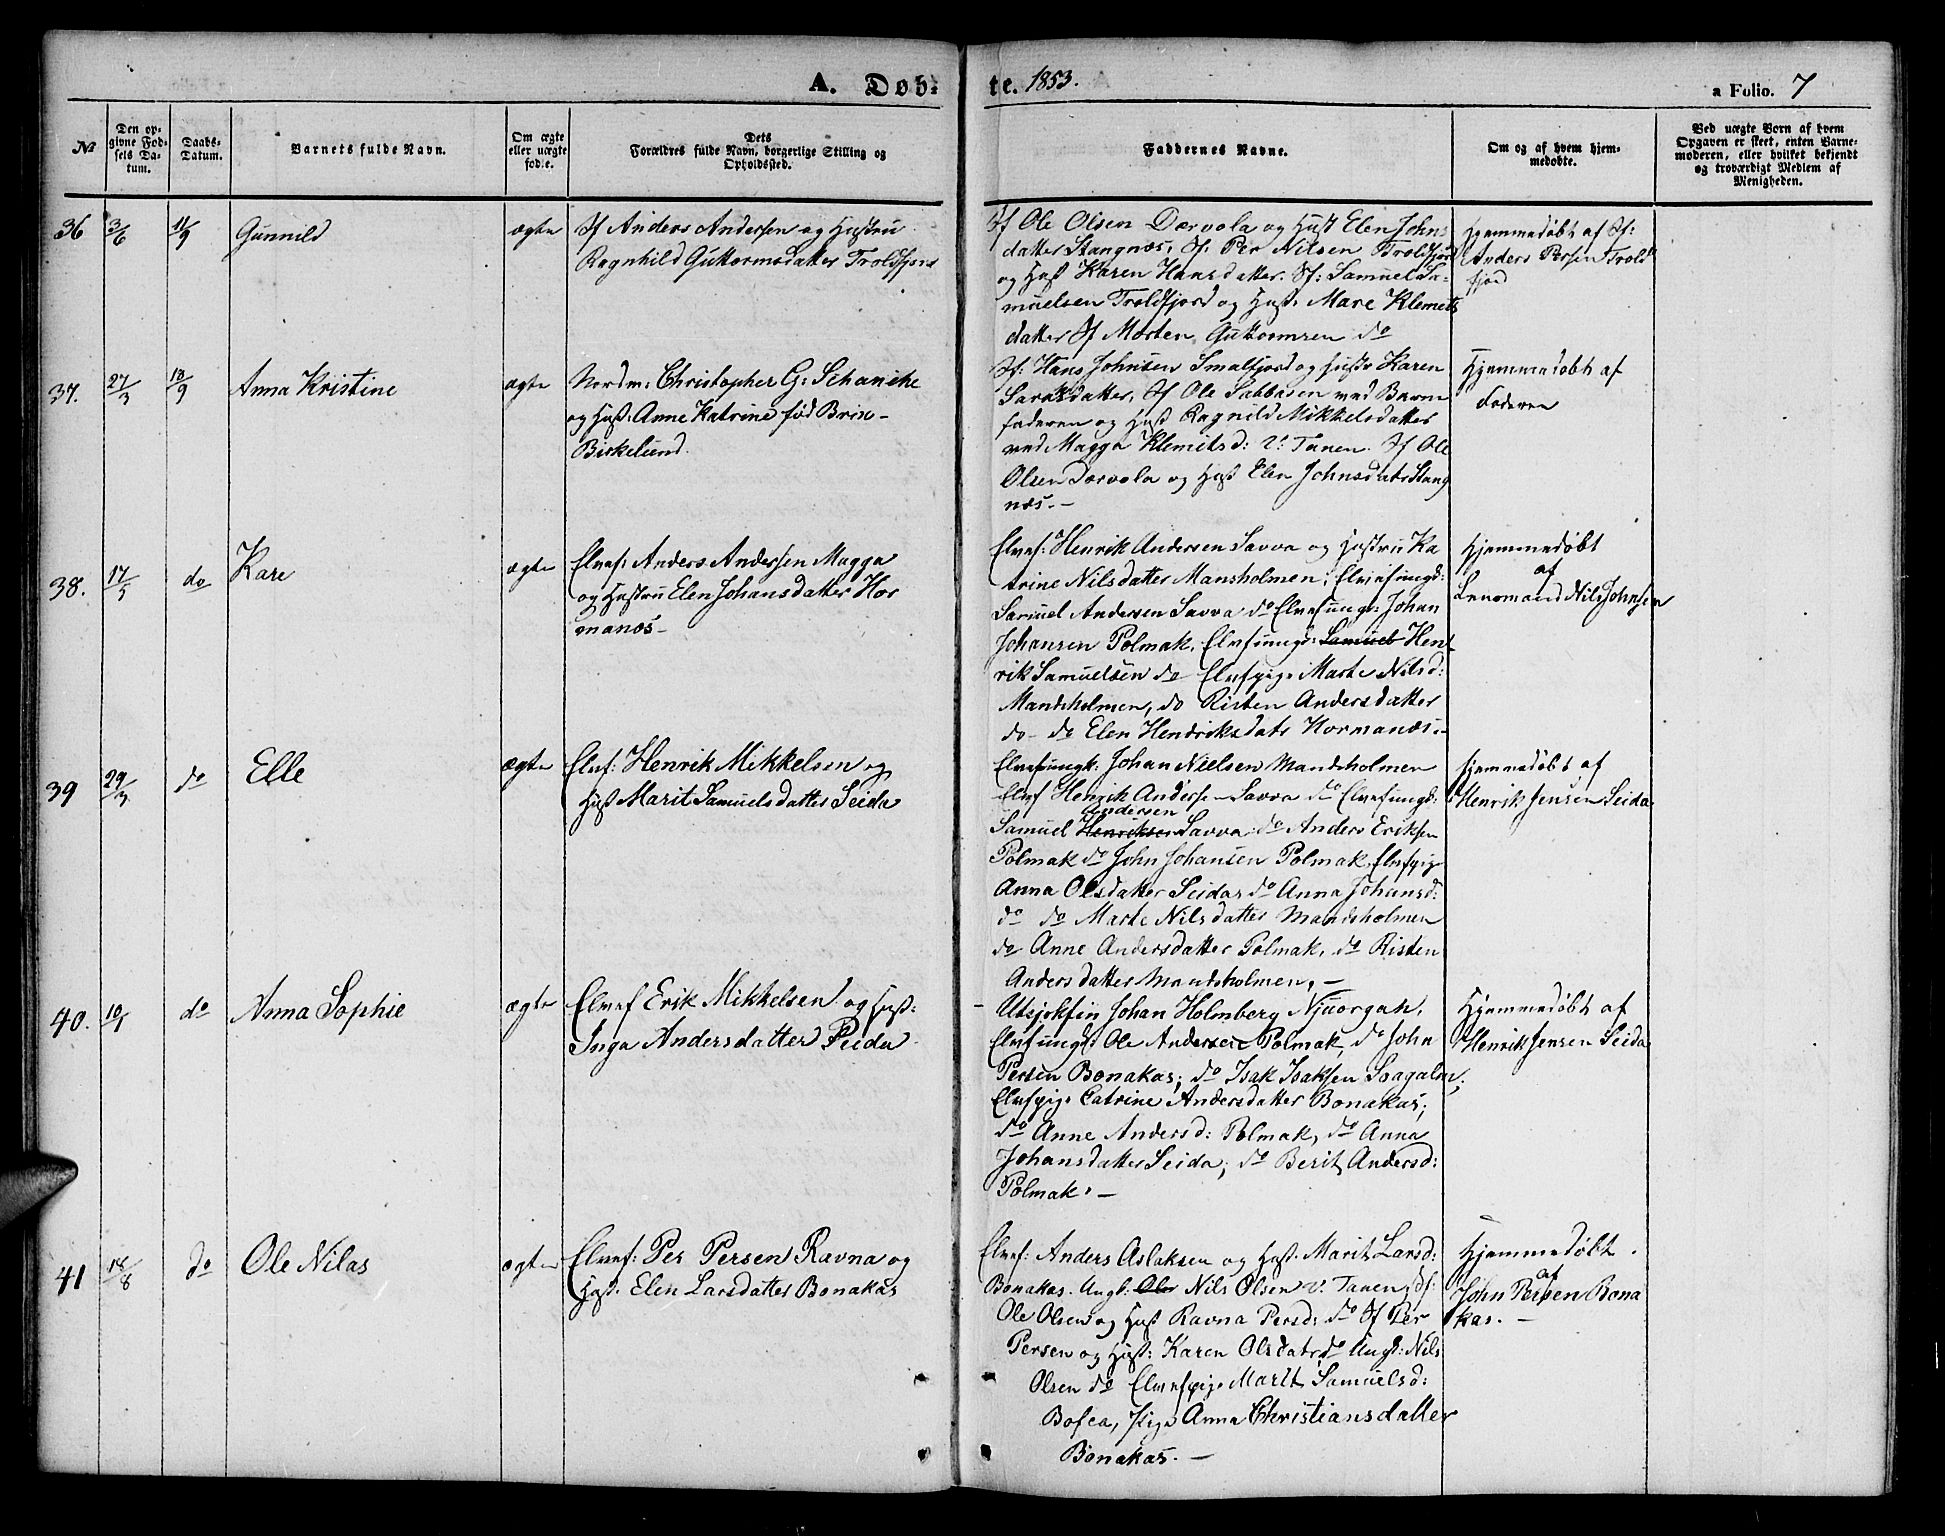 A. Døb-
te. 1853.
a Folio. 7
№
Den op-
givne Fød-
sels Da-
tum.
Daabs-
Datum.
Barnets fulde Navn.
Om ægte
eller uægte
født.
Dets
Forældres fulde Navn, borgerlige Stilling og
Opholdssted.
Faddernes Navne.
Om og af hvem hjem-
medøbte.
Ved uægte Børn af hvem
Opgaven er skeet, enten Barne-
moderen, eller hvilket bekjendt
og troværdigt Medlem af
Menigheden.
36 3/6 11/9 Gunnild ægte
Sf Anders Andersen og Hustru
Ragnhild Guttormsdatter Troldfjord
Sf Ole Olsen Dærvola og Hust Elen Johns
datter Stangnæs, Sf: Per Nilsen Troldfjord
og Hust Karen Hansdatter. Sf: Samuel Sa-
muelsen Troldfjord og Hust: Mare Klemets
datter Sf Morten Guttormsen do
Hjemmedøbt af Sf:
Anders Persen Trold
fjord
37. 27/3 18/9 Anna Kristine ægte
Nordm: Christopher G: Schanche
og Hust: Anne Katrine fød Brin-
Birkelund.
Sf: Hans Johnsen Smalfjord og Hustr Karen
datter, Sf Ole Sabbasen ved Barne
faderen og Hust Ragnild Mikkelsdatter
ved Magga Klemetsd: v: Tanen. Sf Ole
Olsen Dærvola og Hust Elen Johnsdatr Stang
næs.-
Hjemmedøbt af
Faderen
38. 17/5 do Kare ægte
Elvef: Anders Andersen Magga
og Hustru Elen Johansdatter Hor
manæs-
Elvef: Henrik Andersen Savva og Hustru Ka
trine Nilsdatter Mansholmen; Elvefungk:
Samuel Andersen Savva do Elvefungk: Johan
Johansen Polmak, Elvefungk: Samuel Hen
rik Samuelsen do Elvefpige Marte Nilsd:
Mandsholmen, do Risten Andersdatter
do- do Elen Hendriksdatr Hormanæs.-
Hjemmedøbt
af
Lensmand Nils Johnsen
39 29/3 do Elle ægte
Elvef: Henrik Mikkelsen og
Hust Marit Samuelsdatter Seida
Elvefungk: Johan Nielsen Mandsholmen
Elvef Henrik Anderse- Savva do Elvefungk:
Andersen
Samuel Henriksen Savva do Anders Eriksen
Polmak do John Johansen Polmak. Elvefpige
Anna Olsdatter Seida, do Anna Johansd:
do do Marte Nilsdatter Mandsholmen
do Anne Andersdatter Polmak, do Risten
Andersdatter Mandsholmen.-
Hjemmedøbt af
Henrik Jensen Seida
40. do Anna Sophie ægte
Elvef Erik Mikkelsen og Hust:
Inga Andersdatter Seida
- Utsjokfin Johan Holmberg Njuorgak,
Elvefungk: Ole Andersen Polmak, do John
Persen Bonakas; do Isak Isaksen Soagalm;
Elvefpige Catrine Andersdatter Bonakas;
do Anne Andersd: Polmak, do Anna
Johansdatter Seida; do Berit Andersd:
Polmak.-
Hjemmedøbt af
Henrik Jensen Seida
41 18/8 do Ole Nilas ægte
Elvef: Per Persen Ravna og
Hust. Elen Larsdatter Bonakas
Elvef: Anders Aslaksen og Hust: Marit Larsd:
Bonakas. Ungk: Ole Nils Olsen v: Tanen, Sf:
Ole Olsen og Hust Ravna Persd: do Sf Per
Persen og Hust: Karen Olsdatr, do Ungk: Nils
Olsen do Elvefpige Marit Samuelsd:
Bofca, Pige Anna Christiansdatter
Bonakas.-
Hjemmedøbt
af
John Persen Bona
kas.-